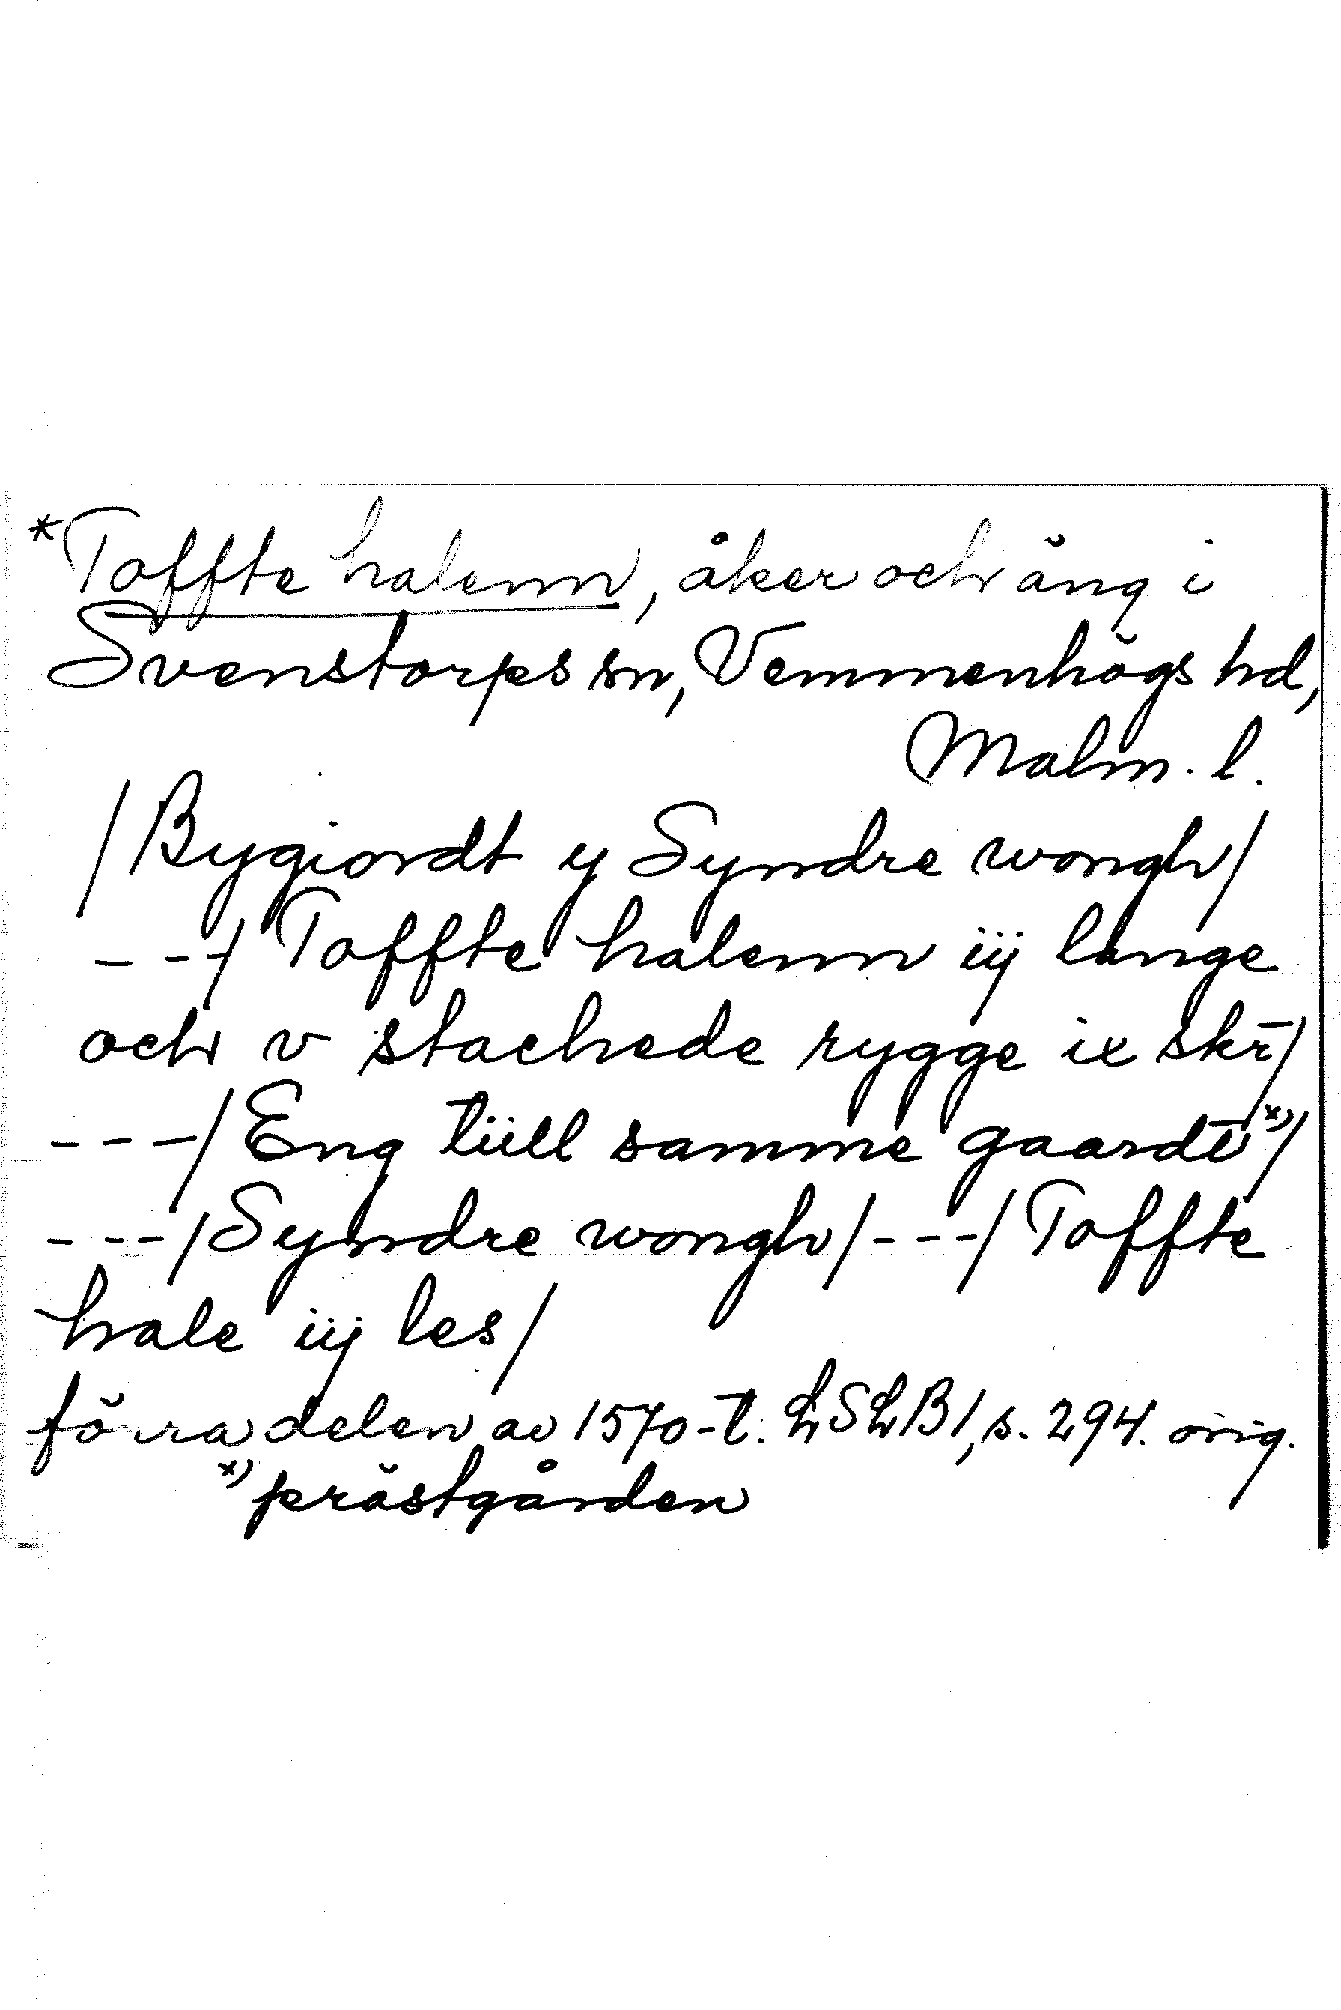 *Toffte halenn, åker och äng i
Svenstorps sn, Vemmenhögs hd,
Malm. l.
/Bygiordt y Syndre wongh/
---/Toffte halenn iij lange
och v stachede rygge ix skr̄/
---/Eng tiill samme gaardt x)/
---/Syndre wongh/---/Toffte
hale iij les/
förra delen av 1570-t. LSLB1, s. 294. orig.
x) prästgården